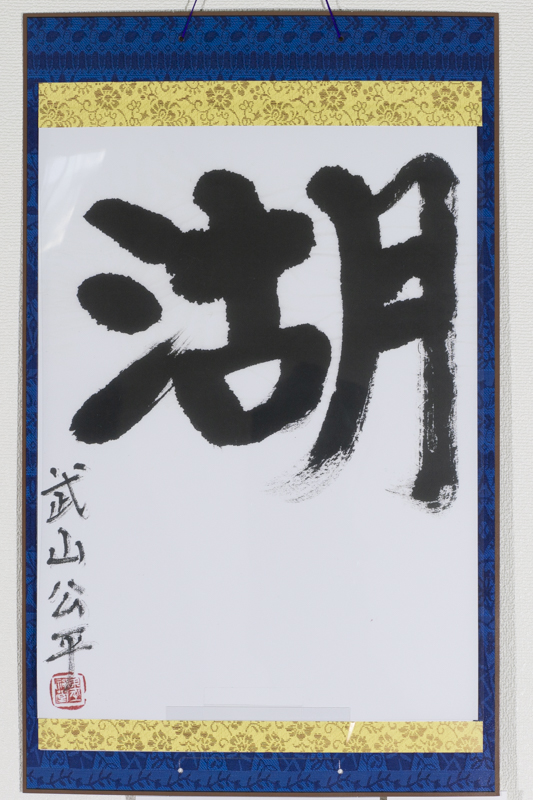 湖
武山公平